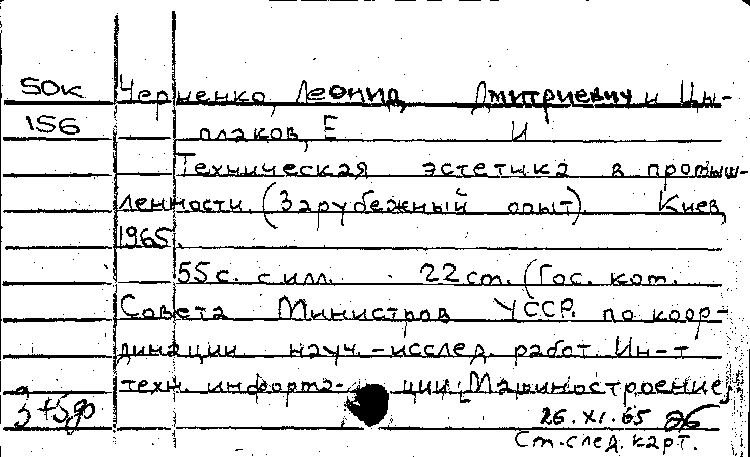 50к Черненко, Леонид Дмитриевич и Цы-
156 плаков, Е И
Техническая эстетика в промыш-
ленности. (Зарубежный опыт). Киев,
1965.
55 с. с илл. 22 cm. (Гос. ком.
Совета Министров УССР. по коор-
динации науч.-исслед. работ. Ин-т
техн. информа- ции. Машиностроение)
26.XI.65
См. след. карт.